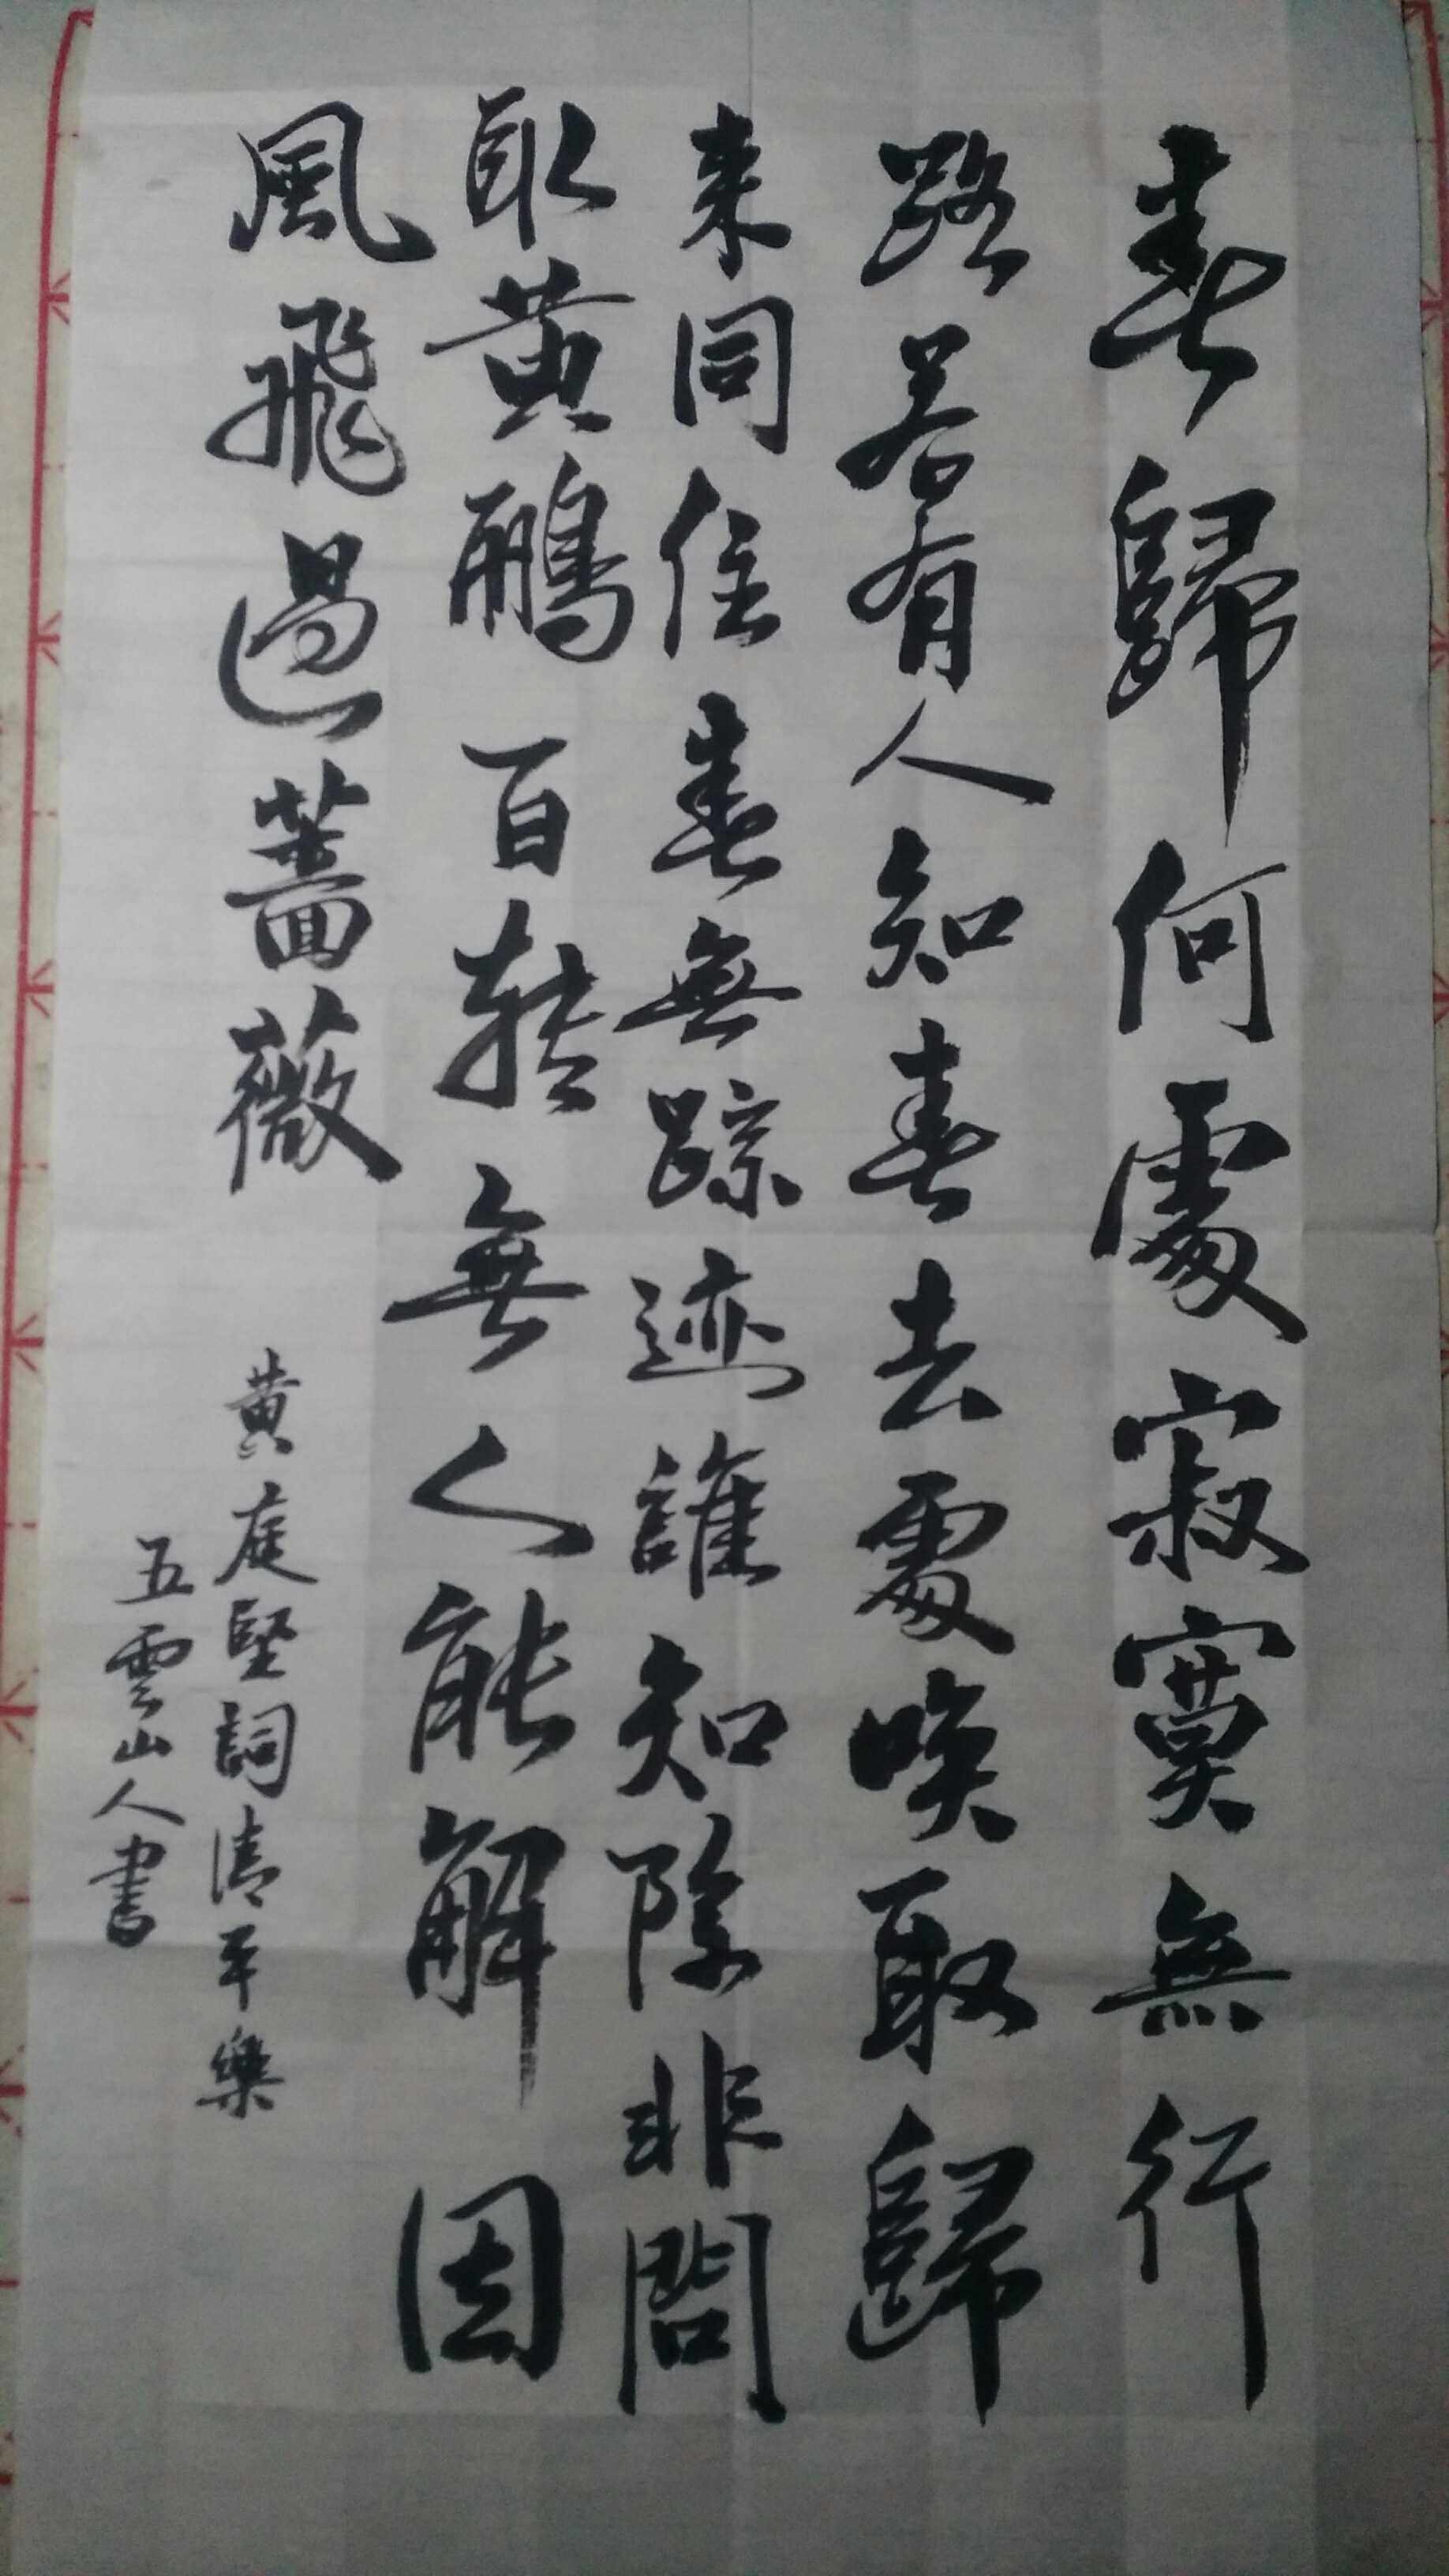 春歸何處寂寞無行
路若有人知春去處喚取歸
来同住春無踪迹誰知除非問
取黄鸝百转無人能解因
風飛過薔薇
黄庭堅詞清平樂
五雲山人書